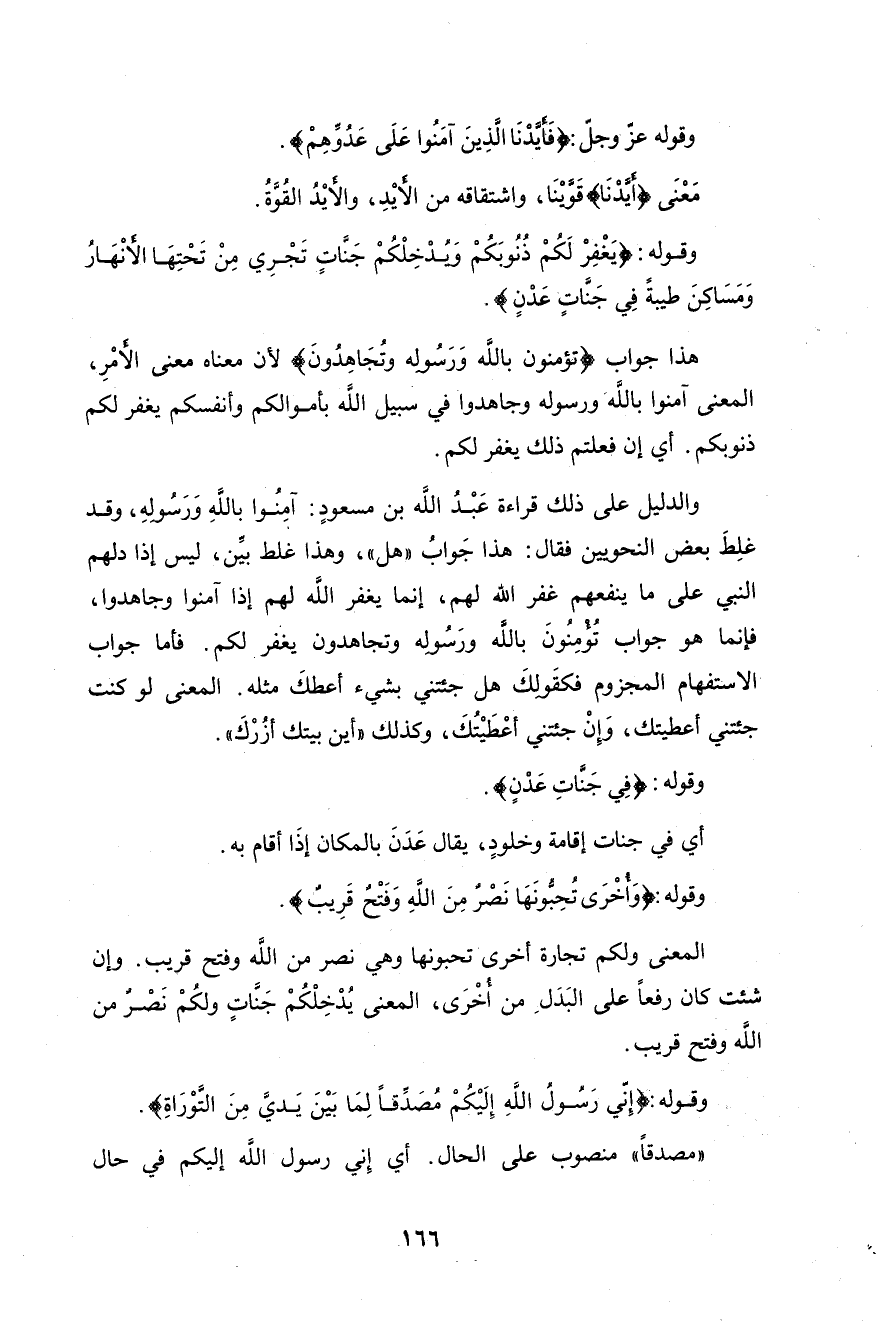 وقوله عزّ وجلّ :﴿فَأَيَّدْنَا الَّذِينَ آمَنُوا عَلَى عَدُوِّهِمْ﴾.
مَعْنَى ﴿أَيَّدْنَا﴾ قَوَّيْنَا، واشتقاقه من الأَيْدِ، والأَيْدُ القُوَّةُ.
وقـوله : ﴿يَغْفِرْ لَكُمْ ذُنُوبَكُمْ وَيُـدْخِلْكُمْ جَنَّاتٍ تَجْرِي مِنْ تَحْتِهَـا الأَنْهَـارُ
وَمَسَاكِنَ طيبةً فِي جَنَّاتٍ عَدْنٍ ﴾.
هذا جواب ﴿تؤمنون باللَّه وَرَسُولِه وتُجَاهِدُونَ﴾ لأن معناه معنى الأَمْرِ،
المعنى آمنوا باللَّه ورسوله وجاهدوا في سبيل اللَّه بأمـوالكم وأنفسكم يغفر لكم
ذنوبكم. أي إن فعلتم ذلك يغفر لكم.
والدليل على ذلك قراءة عَبْـدُ اللَّه بن مسعودٍ: آمِنُـوا باللَّهِ وَرَسُولِهِ، وقـد
غلِطَ بعض النحويين فقال: هذا جَوابُ «هل»، وهذا غلط بيِّن، ليس إذا دلهم
النبي على ما ينفعهم غفر الله لهم، إنما يغفر اللَّه لهم إذا آمنوا وجاهدوا،
فإنما هو جواب تُؤْمِنُونَ باللَّه ورَسُولِه وتجاهدون يغفر لكم. فأما جواب
الاستفهام المجزوم فكقَولِكَ هل جئتني بشيء أعطكَ مثله. المعنى لو كنت
جئتني أعطيتك، وَإنْ جئتني أعْطَيْتُكَ، وكذلك «أين بيتك أزُرْكَ».
وقوله : ﴿فِي جَنَّاتِ عَدْنٍ﴾.
أي في جنات إقامة وخلودٍ، يقال عَدَنَ بالمكان إذَا أقام به.
وقوله :﴿وَأُخْرَى تُحِبُّونَهَا نَصْرٌ مِنَ اللَّهِ وَفَتْحٌ قَرِيبٌ﴾.
المعنى ولكم تجارة أخرى تحبونها وهي نصر من اللَّه وفتح قريب. وإن
شئت كان رفعاً على البَدَلِ من أُخْرَى، المعنى يُدْخِلْكُمْ جَنَّاتٍ ولكُمْ نَصْـرٌ من
اللَّه وفتح قريب.
وقـوله :﴿إِنّي رَسُـولُ اللَّهِ إِلَيْكُمْ مُصَدِّقـاً لِمَا بَيْنَ يَـديَّ مِنَ التَّوْرَاةِ﴾.
«مصدقاً» منصوب على الحال. أي إِني رسول اللَّه إليكم في حال
١٦٦